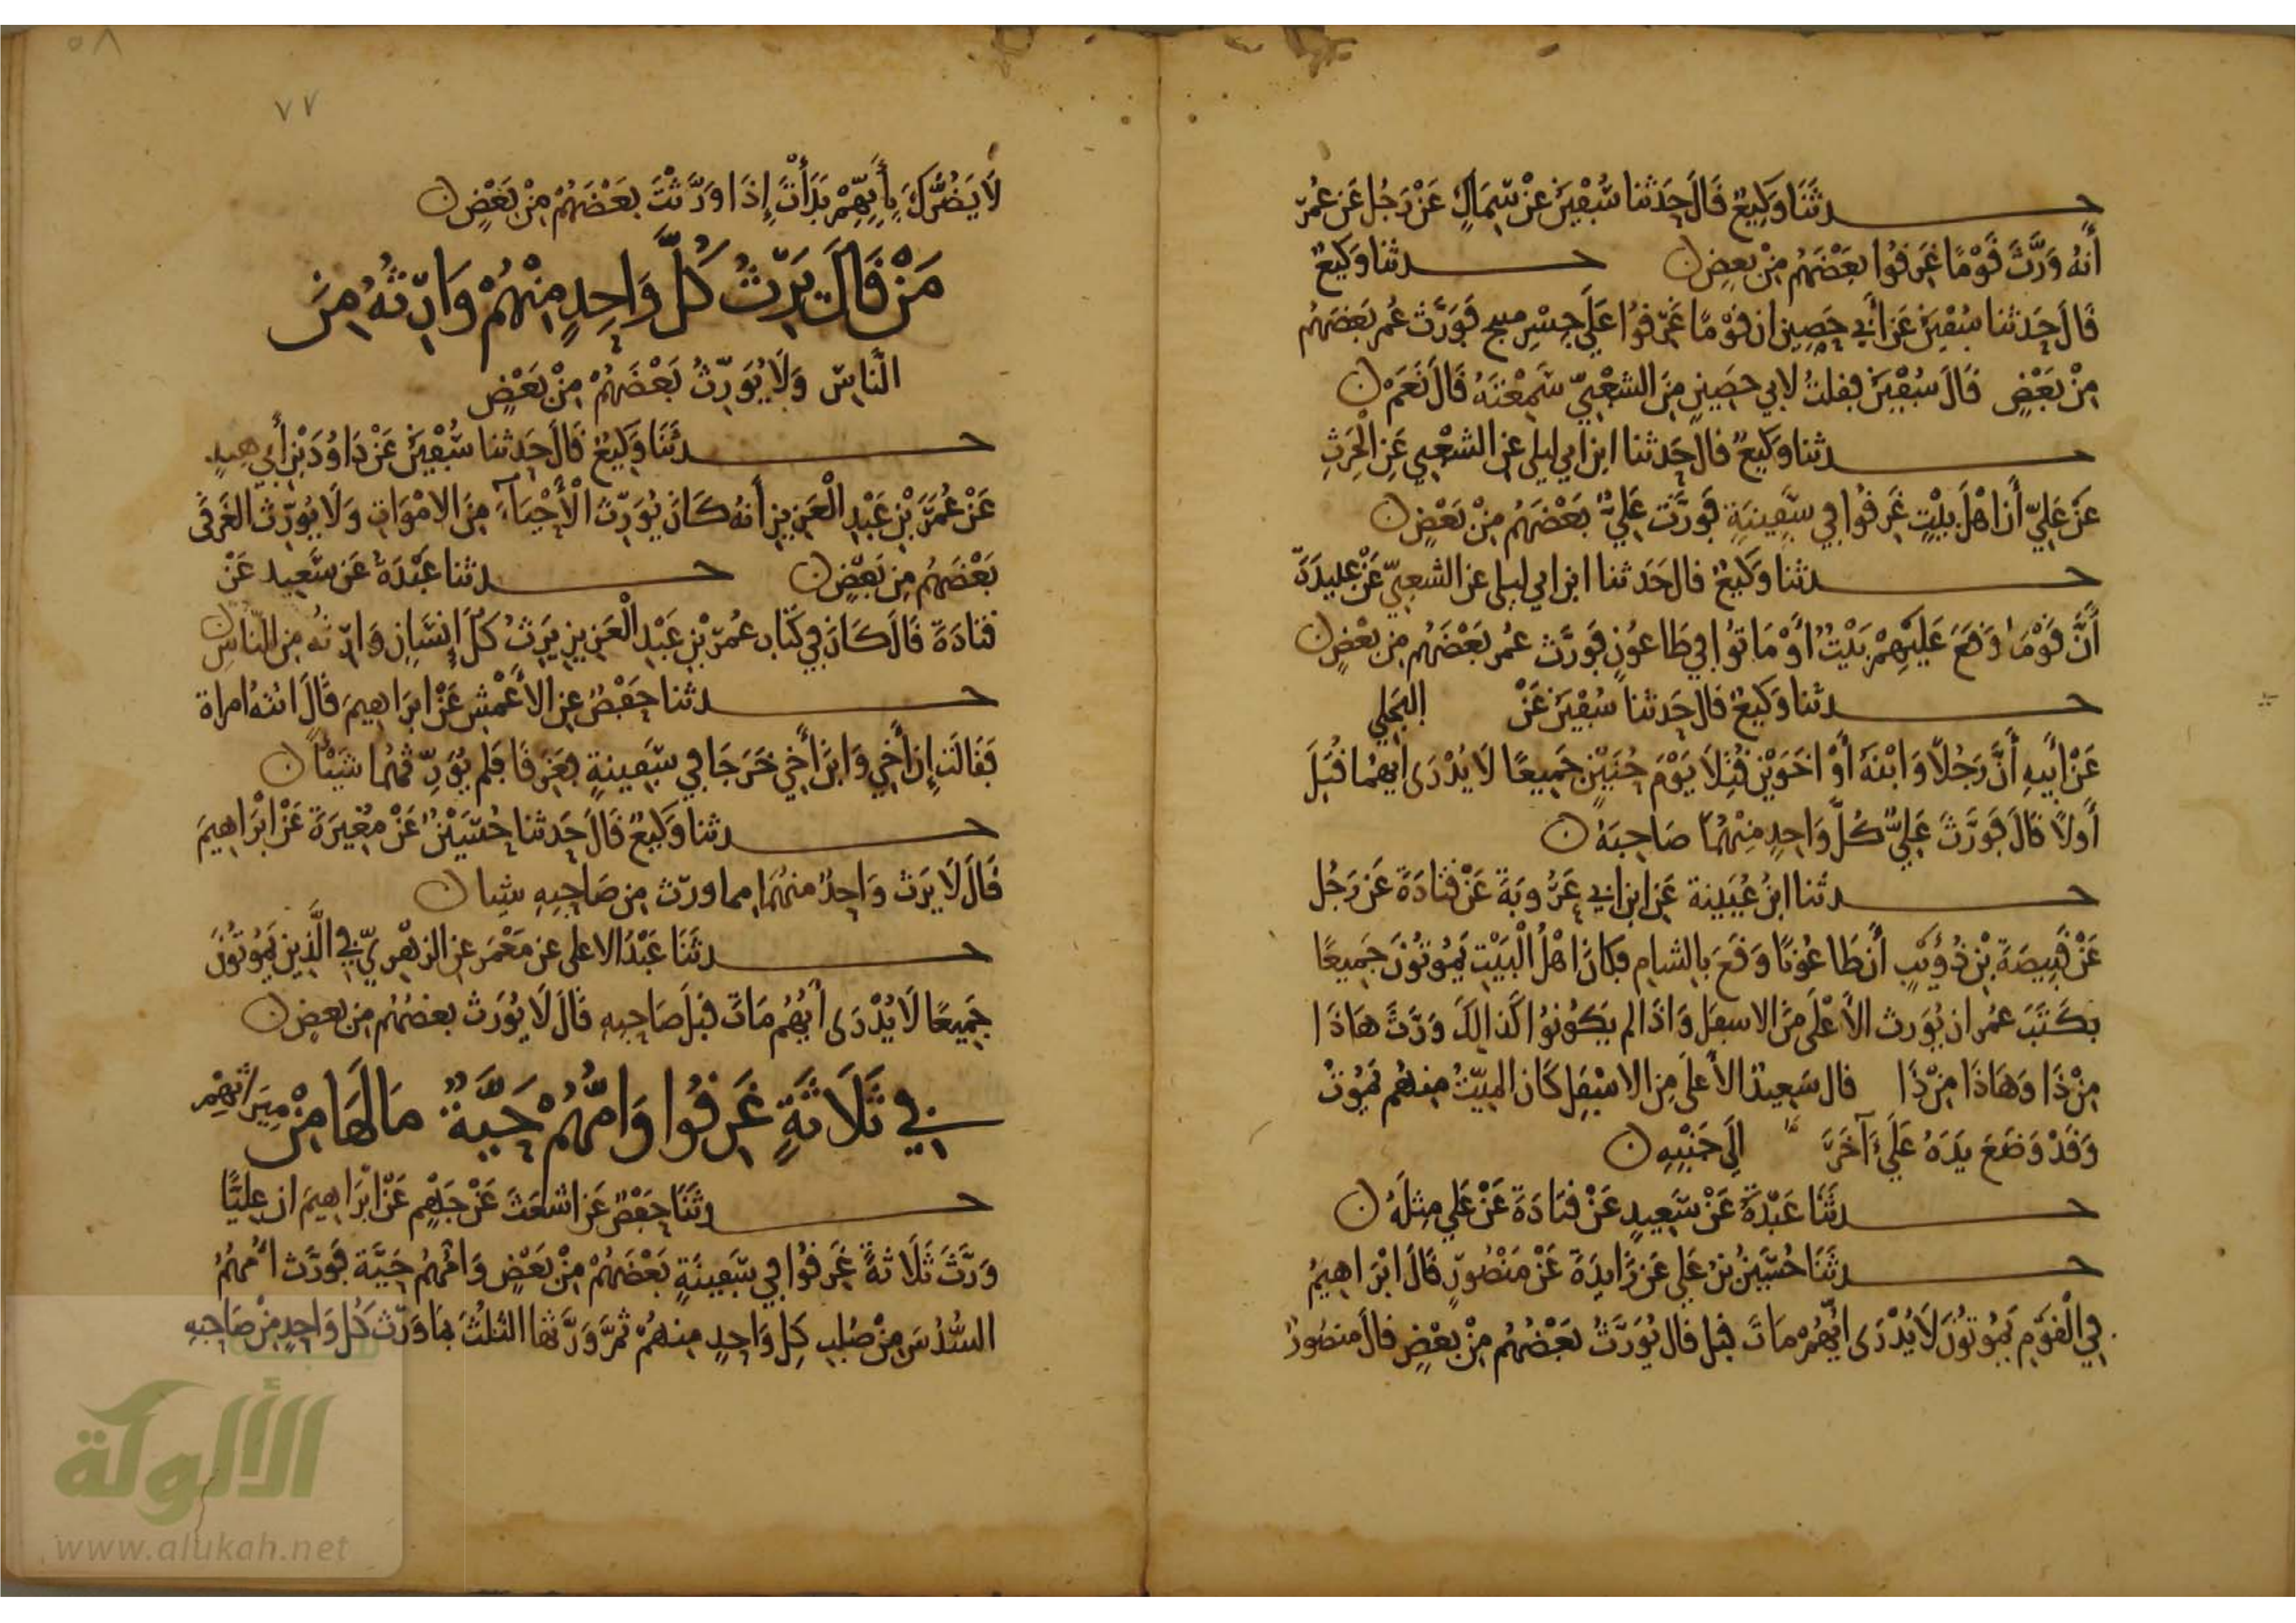 حدثنا وكيع قال حدثنا سفين عن سماك عن رجل عن عمر
أنه ورث قوما غرقوا بعضهم من بعض ن حدثنا وكيع
قال حدثنا سفين عن أبي حصين ان قوما غرقوا على جسر منبج فورث عمر بعضهم
من بعض قال سفين فقلت لابي حصين من الشعبي سمعته قال نعم ن
حدثنا وكيع قال حدثنا ابن ابي ليلى عن الشعبي عن الحرث
عن علي أن اهل بيت غرقوا في سفينة فورث علي بعضهم من بعض ن
حدثنا وكيع قال حدثنا ابن ابي ليلى عن الشعبي عن عبيدة
أن قوما وقع عليهم بيت أو ماتوا في طاعون فورث عمر بعضهم من بعض ن
حدثنا وكيع قال حدثنا سفين عن البجلي
عن أبيه أن رجلا وابنه أو اخوين قتلا يوم جميعا لا يدرى ايهما قتل
أولا قال فورث علي كل واحد منهما صاحبه ن
حدثنا ابن عيينة عن ابن ابي عروبة عن قتادة عن رجل
عن قبيصة بن ذؤيب أن طاعونا وقع بالشام فكان اهل البيت يموتون جميعا
فكتب عمر ان يورث الأعلى من الاسفل واذا لم يكونوا كذالك ورث هاذا
من ذا وهاذا من ذا قال سعيد الأعلى من الاسفل كان الميت منهم يموت
وقد وضع يده على آخر الى جنبه ن
حدثنا عبدة عن سعيد عن قتادة عن علي مثله ن
حدثنا حسين بن علي عن زايدة عن منصور قال ابراهيم
في القوم يموتون لا يدرى ايهم مات قبل قال يورث بعضهم من بعض قال منصور
٥٨
٧٧
لا يضرك بأيهم بدأت إذا ورثت بعضهم من بعض ن
من قال يرث كل واحد منهم وارثه من
الناس ولا يورث بعضهم من بعض
حدثنا وكيع قال حدثنا سفين عن داود بن أبي هند
عن عمر بن عبد العزيز أنه كان يورث الأحياء من الاموات ولا يورث الغرقى
بعضهم من بعض ن حدثنا عبدة عن سعيد عن
قتادة قال كان في كتاب عمر بن عبد العزيز يرث كل إنسان وارثه من الناس ن
حدثنا حفص عن الأعمش عن ابراهيم قال اتته امراة
فقالت إن أخي وابن أخي خرجا في سفينة فغرقا فلم يورثهما شيئا ن
حدثنا وكيع قال حدثنا حسين عن مغيرة عن ابراهيم
قال لا يرث واحد منهما مما ورث من صاحبه شيا ن
حدثنا عبد الاعلى عن معمر عن الزهري في الذين يموتون
جميعا لا يدرى أيهم مات قبل صاحبه قال لا يورث بعضهم من بعض ن
في ثلاثة غرقوا وامهم حية ما لها من ميراثهم
حدثنا حفص عن اشعث عن جهم عن ابراهيم ان عليا
ورث ثلاثة غرقوا في سفينة بعضهم من بعض وامهم حية فورث امهم
السدس من صلب كل واحد منهم ثم ورثها الثلث بما ورث كل واحد من صاحبه
الألوكة
www.alukah.net